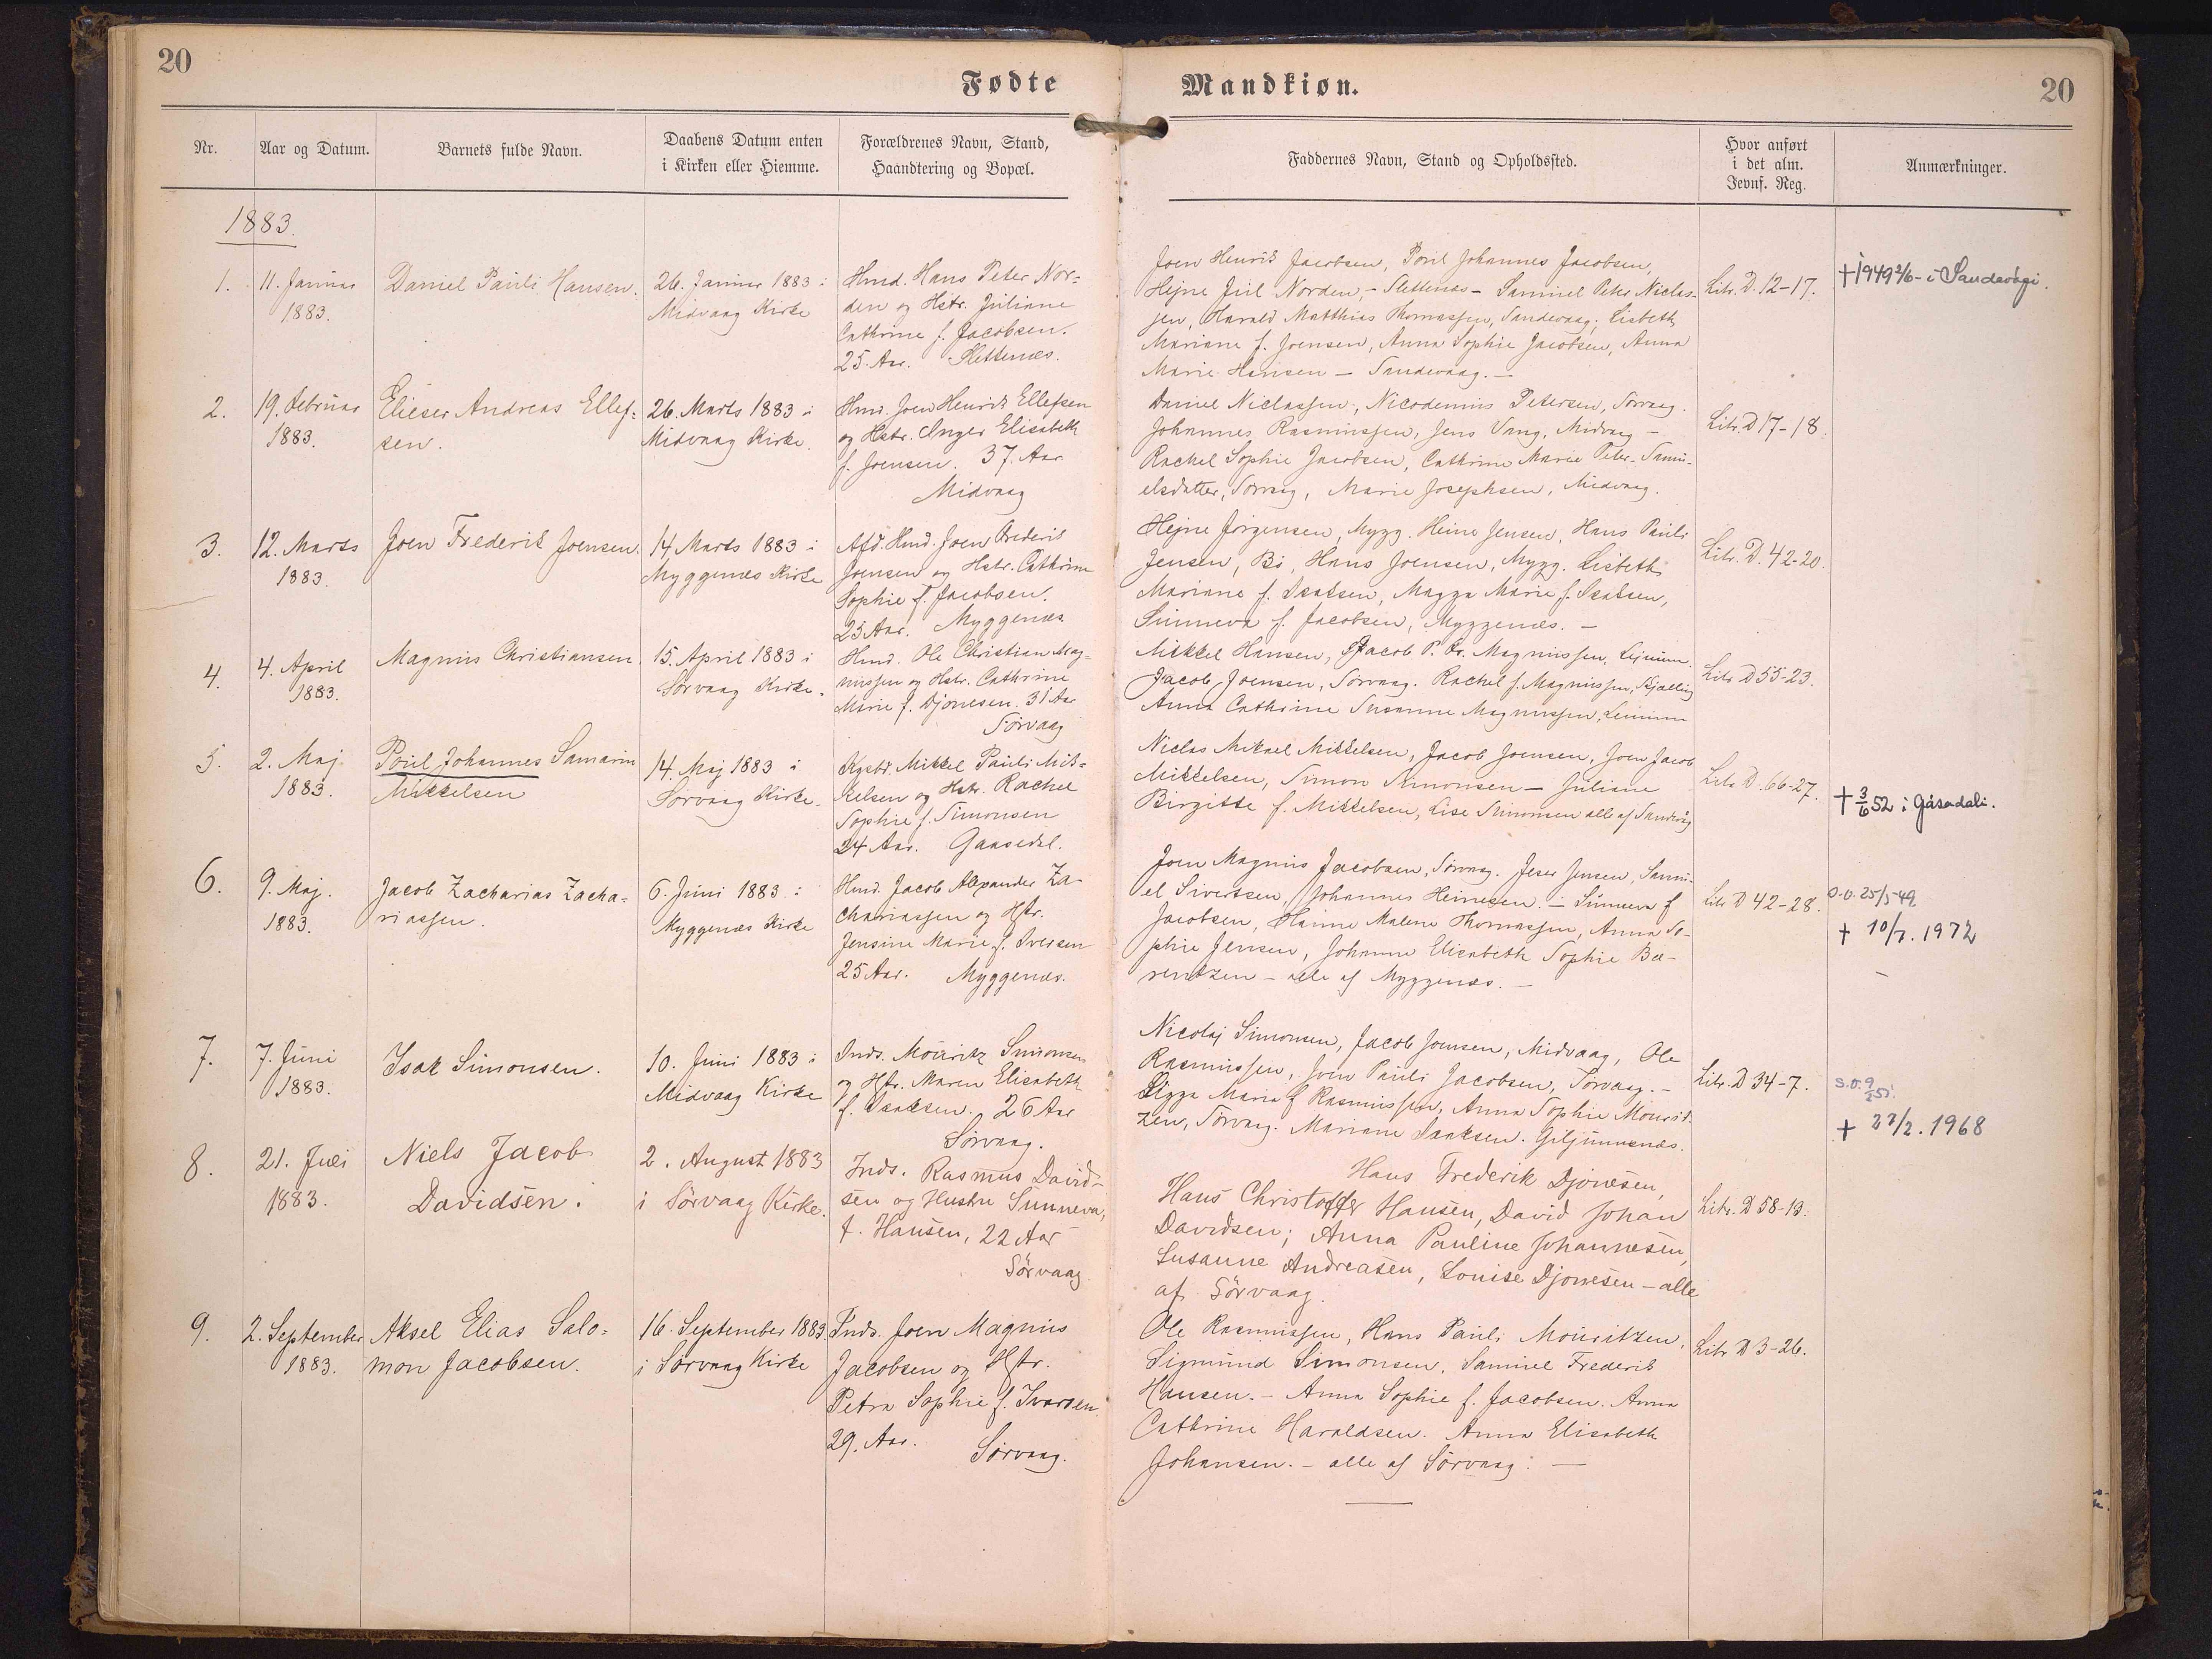 20
Fødte
Mandkiøn.
20
Nr.
Aar og Datum.
Barnets fulde Navn.
Daabens Datum enten
i Kirken eller Hiemme.
Forældrenes Navn, Stand,
Haandtering og Bopæl.
Faddernes Navn, Stand og Opholdssted.
Hvor anført
i det alm.
Jevnf. Reg.
Anmærkninger.
1883.
1.
11. Januar
1883.
Daniel Pauli Hansen.
26. Januar 1883 i
Midvaag Kirke
Hmd. Hans Peter Nor=
den og Hstr. Juliane
Cathrine f. Jacobsen.
25 Aar. Slettenæs.
Joen Henrik Jacobsen, Poul Johannes Jacobsen,
Hejne Juul Norden, - Slettenæs - Samuel Peter Niclas-
sen, Harald Matthias Thomassen, Sandevaag; Lisbeth
Mariane f. Joensen, Anna Sophie Jacobsen, Anna
Marie Hansen - Sandevaag. -
Litr. D. 12-17.
† 1949 2/6 - i Sandavági.
2.
19. Februar
1883.
Elieser Andreas Ellef=
sen.
26. Marts 1883 i
Midvaag Kirke.
Hmd. Joen Henrik Ellefsen
og Hstr. Inger Elisabeth
f. Joensen. 37 Aar
Midvaag
Daniel Niclassen, Nicodemus Petersen, Sørvaag.
Johannes Rasmussen, Jens Vang, Midvaag -
Rachel Sophie Jacobsen, Cathrine Marie Peter-Samu-
elsdatter, Sørvaag, Marie Josephsen, Midvaag.
Litr. D 17-18.
3.
12. Marts
1883.
Joen Frederik Joensen.
14. Marts 1883 i
Myggenæs Kirke
Afd. Hmd. Joen Frederik
Joensen og Hstr. Cathrine
Sophie f. Jacobsen.
23 Aar. Myggenæs
Hejne Jørgensen, Mygg. Heine Jensen, Hans Pauli
Jensen, Bø, Hans Joensen, Mygg. Lisbeth
Mariane f. Isaksen, Magga Marie f. Isaksen,
Sunneva f. Jacobsen, Myggenæs. -
Litr. D. 42-20.
4.
4. April
1883.
Magnus Christiansen.
15. April 1883 i
Sørvaag Kirke.
Hmd. Ole Christian Mag=
nussen og Hstr. Cathrine
Marie f. Djonesen. 31 Aar
Sørvaag
Mikkel Hansen, Jacob P. Chr. Magnussen,
Jacob Joensen, Sørvaag. Rachel f. Magnussen,
Anna Cathrine Susanne Magnussen,
Litr D 55-23.
5.
2. Maj
1883.
Poul Johannes Samarin
Mikkelsen
14. Maj 1883 i
Sørvaag Kirke.
Mikkel Pauli Mik=
kelsen og Hstr. Rachel
Sophie f. Simonsen
24 Aar. Gaasedal.
Niclas Mikael Mikkelsen, Jacob Joensen, Joen Jacob
Mikkelsen, Simon Simonsen - Juliane
Birgitte f. Mikkelsen, Lise Simonsen alle af Sandevåg
Litr D. 66-27.
† 3/6 52 í Gásadali.
6.
9. Maj.
1883.
Jacob Zacharias Zacha=
riassen.
6. Juni 1883 i
Myggenæs Kirke
Hmd. Jacob Alexander Za-
chariassen og Hstr.
Jensine Marie f. Iversen
25 Aar. Myggenæs.
Joen Magnus Jacobsen, Sørvaag. Jeser Jensen, Samu-
el Sivertsen, Johannes Heinesen. - Sunneva f
Jacobsen, Hanne Malene Thomassen, Anna So-
phie Jensen, Johanne Elisabeth Sophie Ba-
rentzen - alle af Myggenæs. -
Litr D 42-28.
D.O. 25/5 49.
† 10/7. 1972
-
7.
7. Juni
1883.
Isak Simonsen.
10. Juni 1883 i
Midvaag Kirke
Inds. Mouritz Simonsen
og Hstr. Maren Elisabeth
f. Isaksen. 26 Aar
Sørvaag.
Nicolaj Simonsen, Jacob Joensen, Midvaag, Ole
Rasmussen, Joen Pauli Jacobsen, Sørvaag. -
Sigga Maria f Rasmussen, Anna Sophie Mourit-
zen, Sørvaag. Mariane Isaksen. Giljumnæs.
Litr. D 34-7.
S.O. 9/2 51.
† 27/2. 1968
8.
21. Juli
1883.
Niels Jacob
Davidsen.
2. August 1883
i Sörvaag Kirke.
Inds. Rasmus David-
sen og Hustru Sunneva,
f. Hansen, 22 Aar
Sörvaag.
Hans Frederik Djonesen,
Hans Christoffer Hansen, David Johan
Davidsen; Anna Pauline Johannesen,
Susanne Andreasen, Louise Djonesen - alle
af Sörvaag.
Litr. D 58-13.
9.
2. September
1883.
Aksel Elias Salo=
mon Jacobsen.
16. September 1883.
i Sørvaag Kirke
Inds. Joen Magnus
Jacobsen og Hstr.
Petra Sophie f. Ivarsen
29. Aar. Sørvaag.
Ole Rasmussen, Hans Pauli Mouritzen,
Sigmund Simonsen, Samuel Frederik
Hansen. - Anna Sophie f. Jacobsen. Anna
Cathrine Haraldsen. Anna Elisabeth
Johansen. - alle af Sørvaag. -
Litr D 3-26.